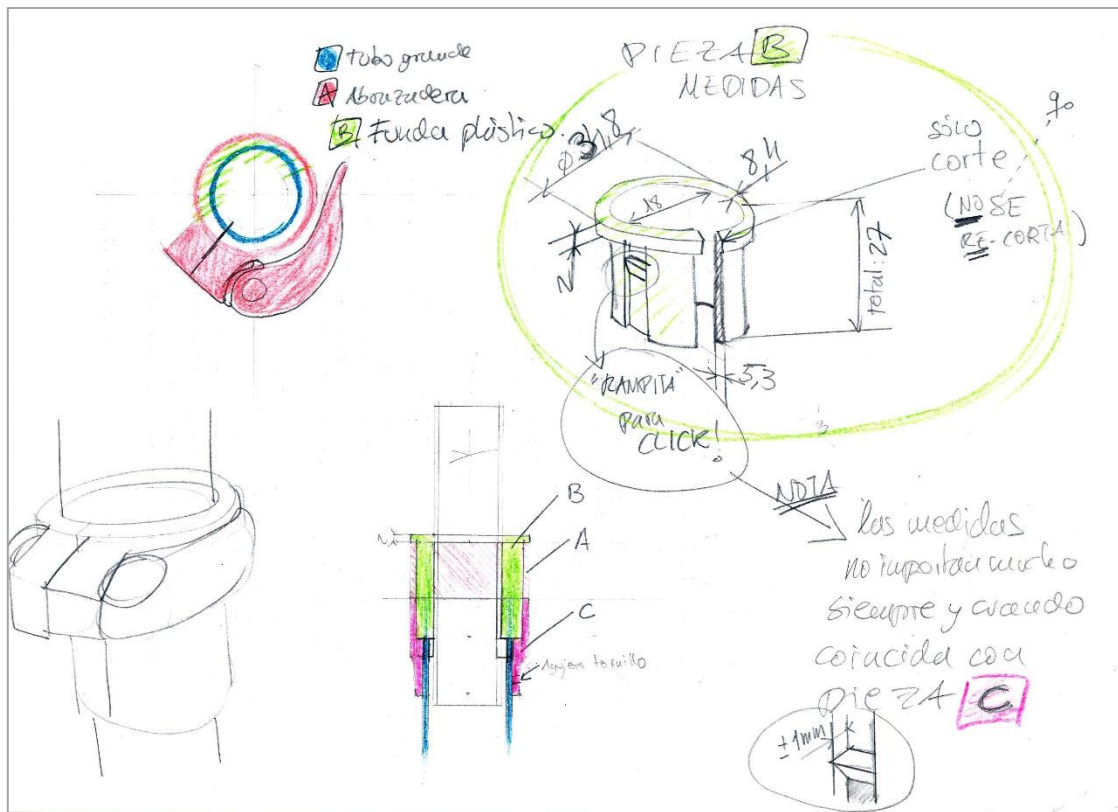 tubo grande
A Abrazadera
B Funda plástico.
PIEZA B
MEDIDAS
sólo
corte
(NO SE
RE-CORTA)
18
2
total: 27
5,3
"RAMPITA"
para
CLICK!
NOTA
las medidas
no importan mucho
siempre y cuando
coincida con
PIEZA C
± 1mm
B
A
C
Agujero tornillo
2